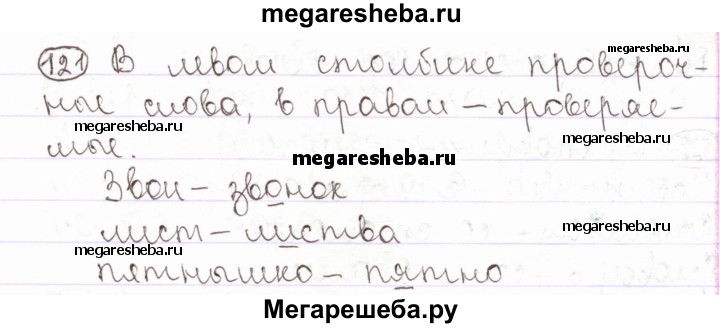 megaresheba.ru
121 В левом столбике провероч-
megaresheba.ru
ные слова, в правом – проверяе-
megaresheba.ru
мые.
megaresheba.ru
Звон – звонок
лист – листва
megaresheba.ru
megaresheba.ru
пятнышко – пятно
Мегарешеба.ру